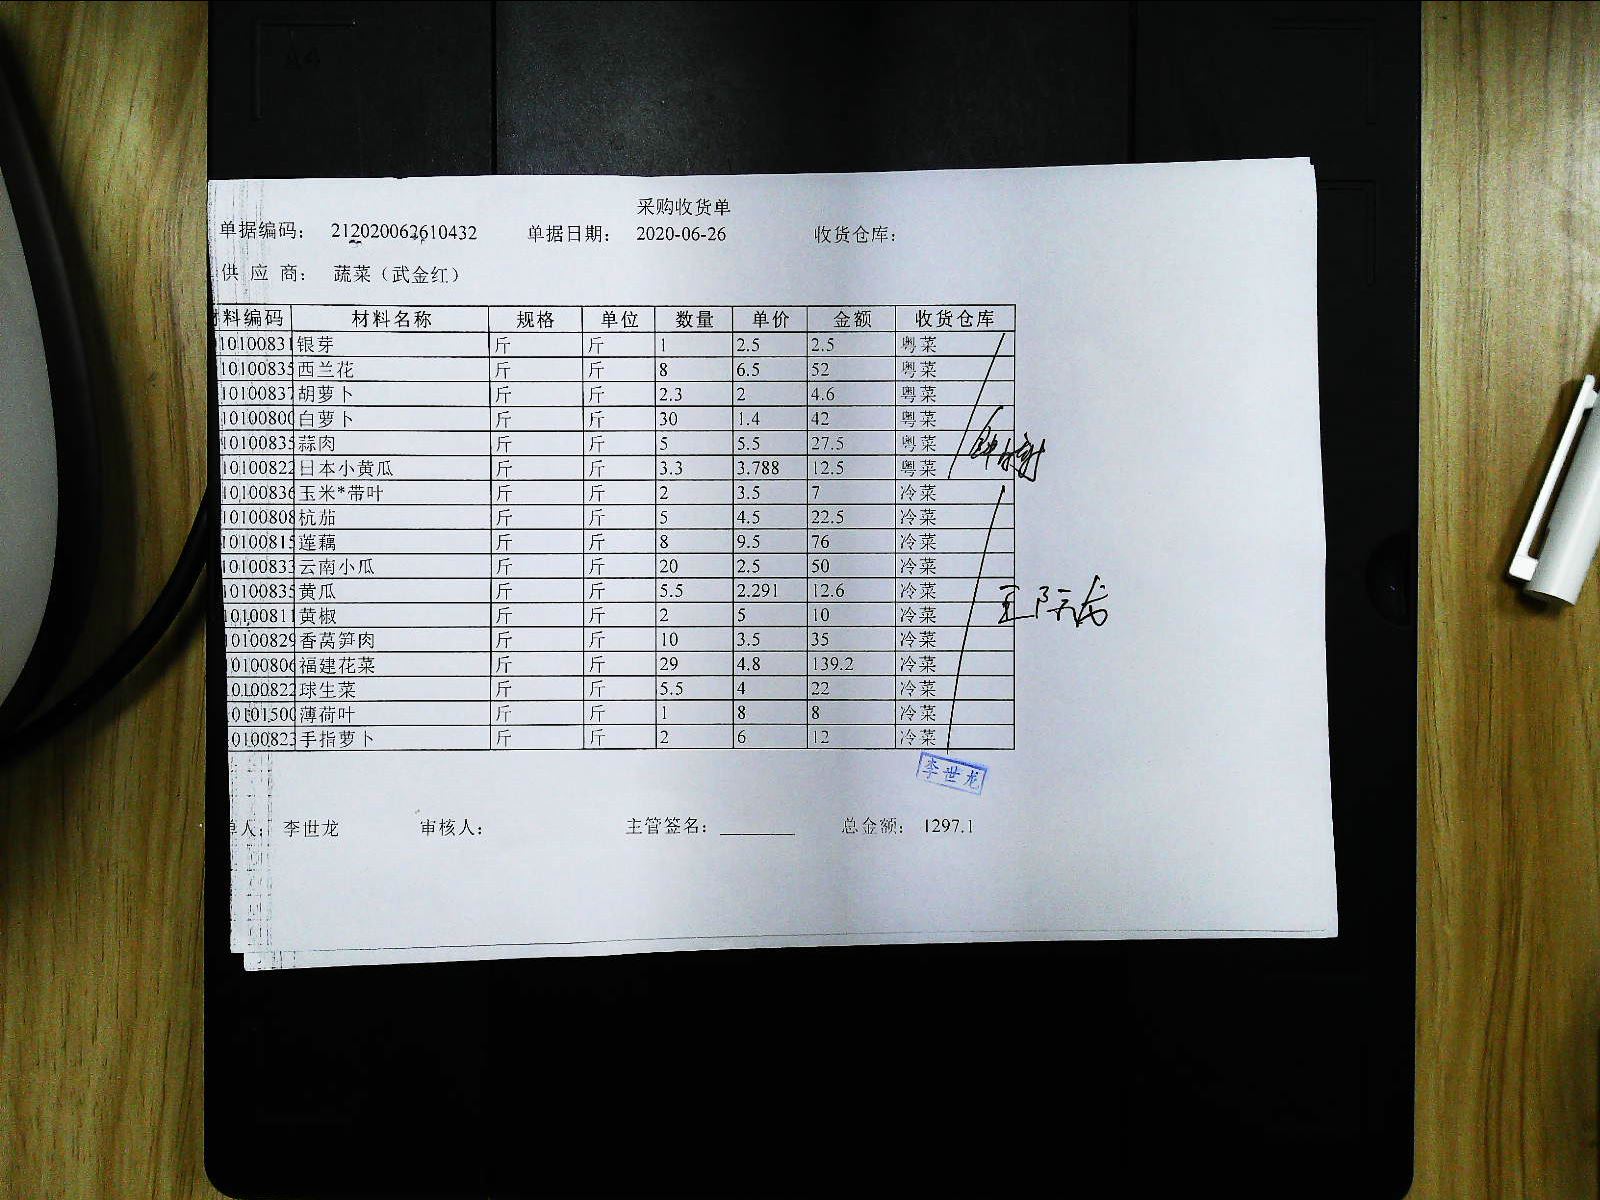 采购收货单
单据编码： 212020062610432 单据日期： 2020-06-26 收货仓库：
供 应 商： 蔬菜（武金红）
料编码 材料名称 规格 单位 数量 单价 金额 收货仓库
10100831 银芽 斤 斤 1 2.5 2.5 粤菜
10100835 西兰花 斤 斤 8 6.5 52 粤菜
10100837 胡萝卜 斤 斤 2.3 2 4.6 粤菜
10100800 白萝卜 斤 斤 30 1.4 42 粤菜
10100835 蒜肉 斤 斤 5 5.5 27.5 粤菜
10100822 日本小黄瓜 斤 斤 3.3 3.788 12.5 粤菜
10100836 玉米*带叶 斤 斤 2 3.5 7 冷菜
10100808 杭茄 斤 斤 5 4.5 22.5 冷菜
10100815 莲藕 斤 斤 8 9.5 76 冷菜
10100833 云南小瓜 斤 斤 20 2.5 50 冷菜
10100835 黄瓜 斤 斤 5.5 2.291 12.6 冷菜
10100811 黄椒 斤 斤 2 5 10 冷菜
10100829 香莴笋肉 斤 斤 10 3.5 35 冷菜
10100806 福建花菜 斤 斤 29 4.8 139.2 冷菜
10100822 球生菜 斤 斤 5.5 4 22 冷菜
0101500 薄荷叶 斤 斤 1 8 8 冷菜
0100823 手指萝卜 斤 斤 2 6 12 冷菜
李世龙
单人： 李世龙 审核人： 主管签名： 总金额： 1297.1